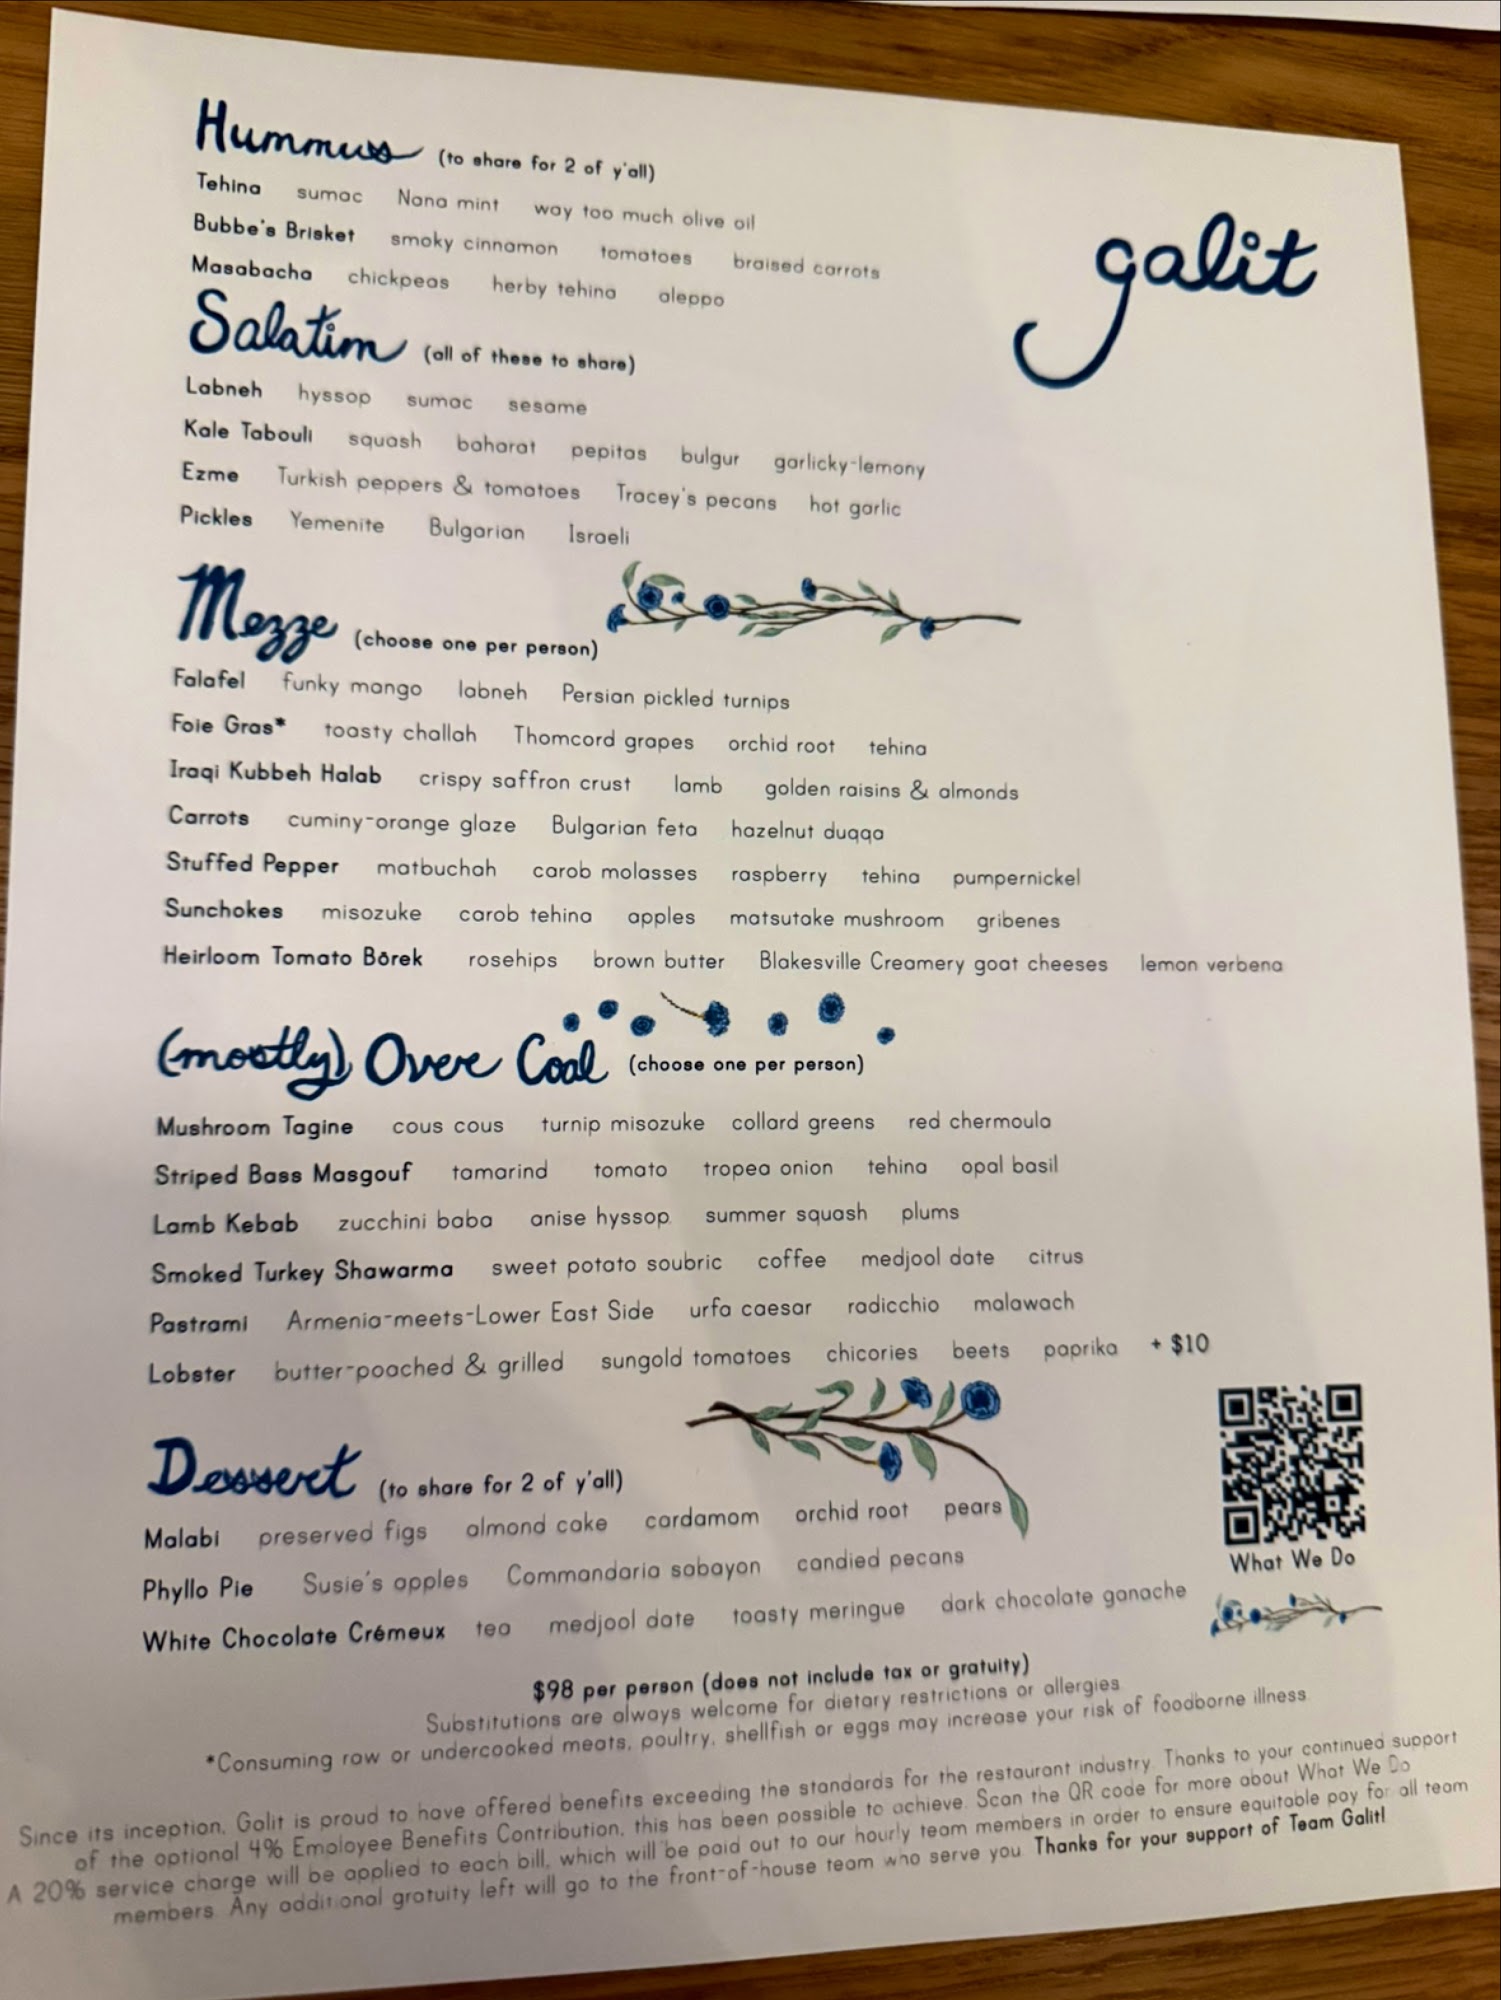 galit
Hummus (to share for 2 of y'all)
Tehina sumac Nana mint way too much olive oil
Bubbe's Brisket smoky cinnamon tomatoes braised carrots
Masabacha chickpeas herby tehina aleppo
Salatim (all of these to share)
Labneh hyssop sumac sesame
Kale Tabouli squash baharat pepitas bulgur garlicky-lemony
Ezme Turkish peppers & tomatoes Tracey's pecans hot garlic
Pickles Yemenite Bulgarian Israeli
Mezze (choose one per person)
Falafel funky mango labneh Persian pickled turnips
Foie Gras* toasty challah Thomcord grapes orchid root tehina
Iraqi Kubbeh Halab crispy saffron crust lamb golden raisins & almonds
Carrots cuminy-orange glaze Bulgarian feta hazelnut duqqa
Stuffed Pepper matbuchah carob molasses raspberry tehina pumpernickel
Sunchokes misozuke carob tehina apples matsutake mushroom gribenes
Heirloom Tomato Börek rosehips brown butter Blakesville Creamery goat cheeses lemon verbena
(mostly) Over Coal (choose one per person)
Mushroom Tagine cous cous turnip misozuke collard greens red chermoula
Striped Bass Masgouf tamarind tomato tropea onion tehina opal basil
Lamb Kebab zucchini baba anise hyssop summer squash plums
Smoked Turkey Shawarma sweet potato soubric coffee medjool date citrus
Pastrami Armenia-meets-Lower East Side urfa caesar radicchio malawach
Lobster butter-poached & grilled sungold tomatoes chicories beets paprika + $10
Dessert (to share for 2 of y'all)
Malabi preserved figs almond cake cardamom orchid root pears
Phyllo Pie Susie's apples Commandaria sabayon candied pecans
White Chocolate Crémeux tea medjool date toasty meringue dark chocolate ganache
What We Do
$98 per person (does not include tax or gratuity)
Substitutions are always welcome for dietary restrictions or allergies
*Consuming raw or undercooked meats, poultry, shellfish or eggs may increase your risk of foodborne illness
Since its inception, Galit is proud to have offered benefits exceeding the standards for the restaurant industry. Thanks to your continued support
of the optional 4% Employee Benefits Contribution, this has been possible to achieve. Scan the QR code for more about What We Do
A 20% service charge will be applied to each bill, which will be paid out to our hourly team members in order to ensure equitable pay for all team
members. Any additional gratuity left will go to the front-of-house team who serve you. Thanks for your support of Team Galit!